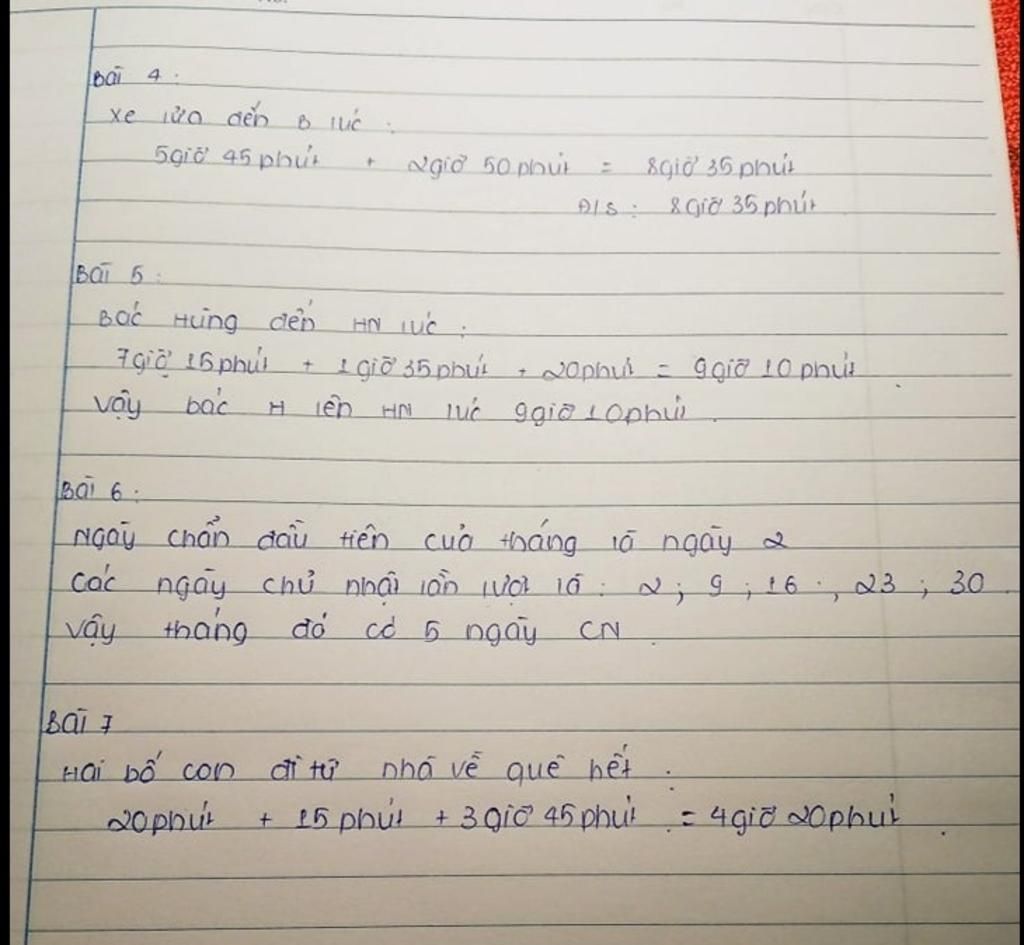 Bài 4 :
Xe lửa đến B lúc :
5giờ 45 phút + 2giờ 50 phút = 8giờ 35 phút
Đ/S : 8giờ 35 phút
Bài 5 :
Bác Hùng đến HN lúc :
7giờ 15 phút + 1 giờ 35 phút + 20phút = 9giờ 10 phút .
Vậy bác H lên HN lúc 9giờ 10phút .
Bài 6 :
Ngày chẩn đầu tiên của tháng là ngày 2
Các ngày chủ nhật lần lượt là : 2 ; 9 ; 16 ; 23 ; 30 .
Vậy tháng đó có 5 ngày CN .
Bài 7
Hai bố con đi từ nhà về quê hết :
20phút + 15 phút + 3 giờ 45 phút = 4giờ 20phút .